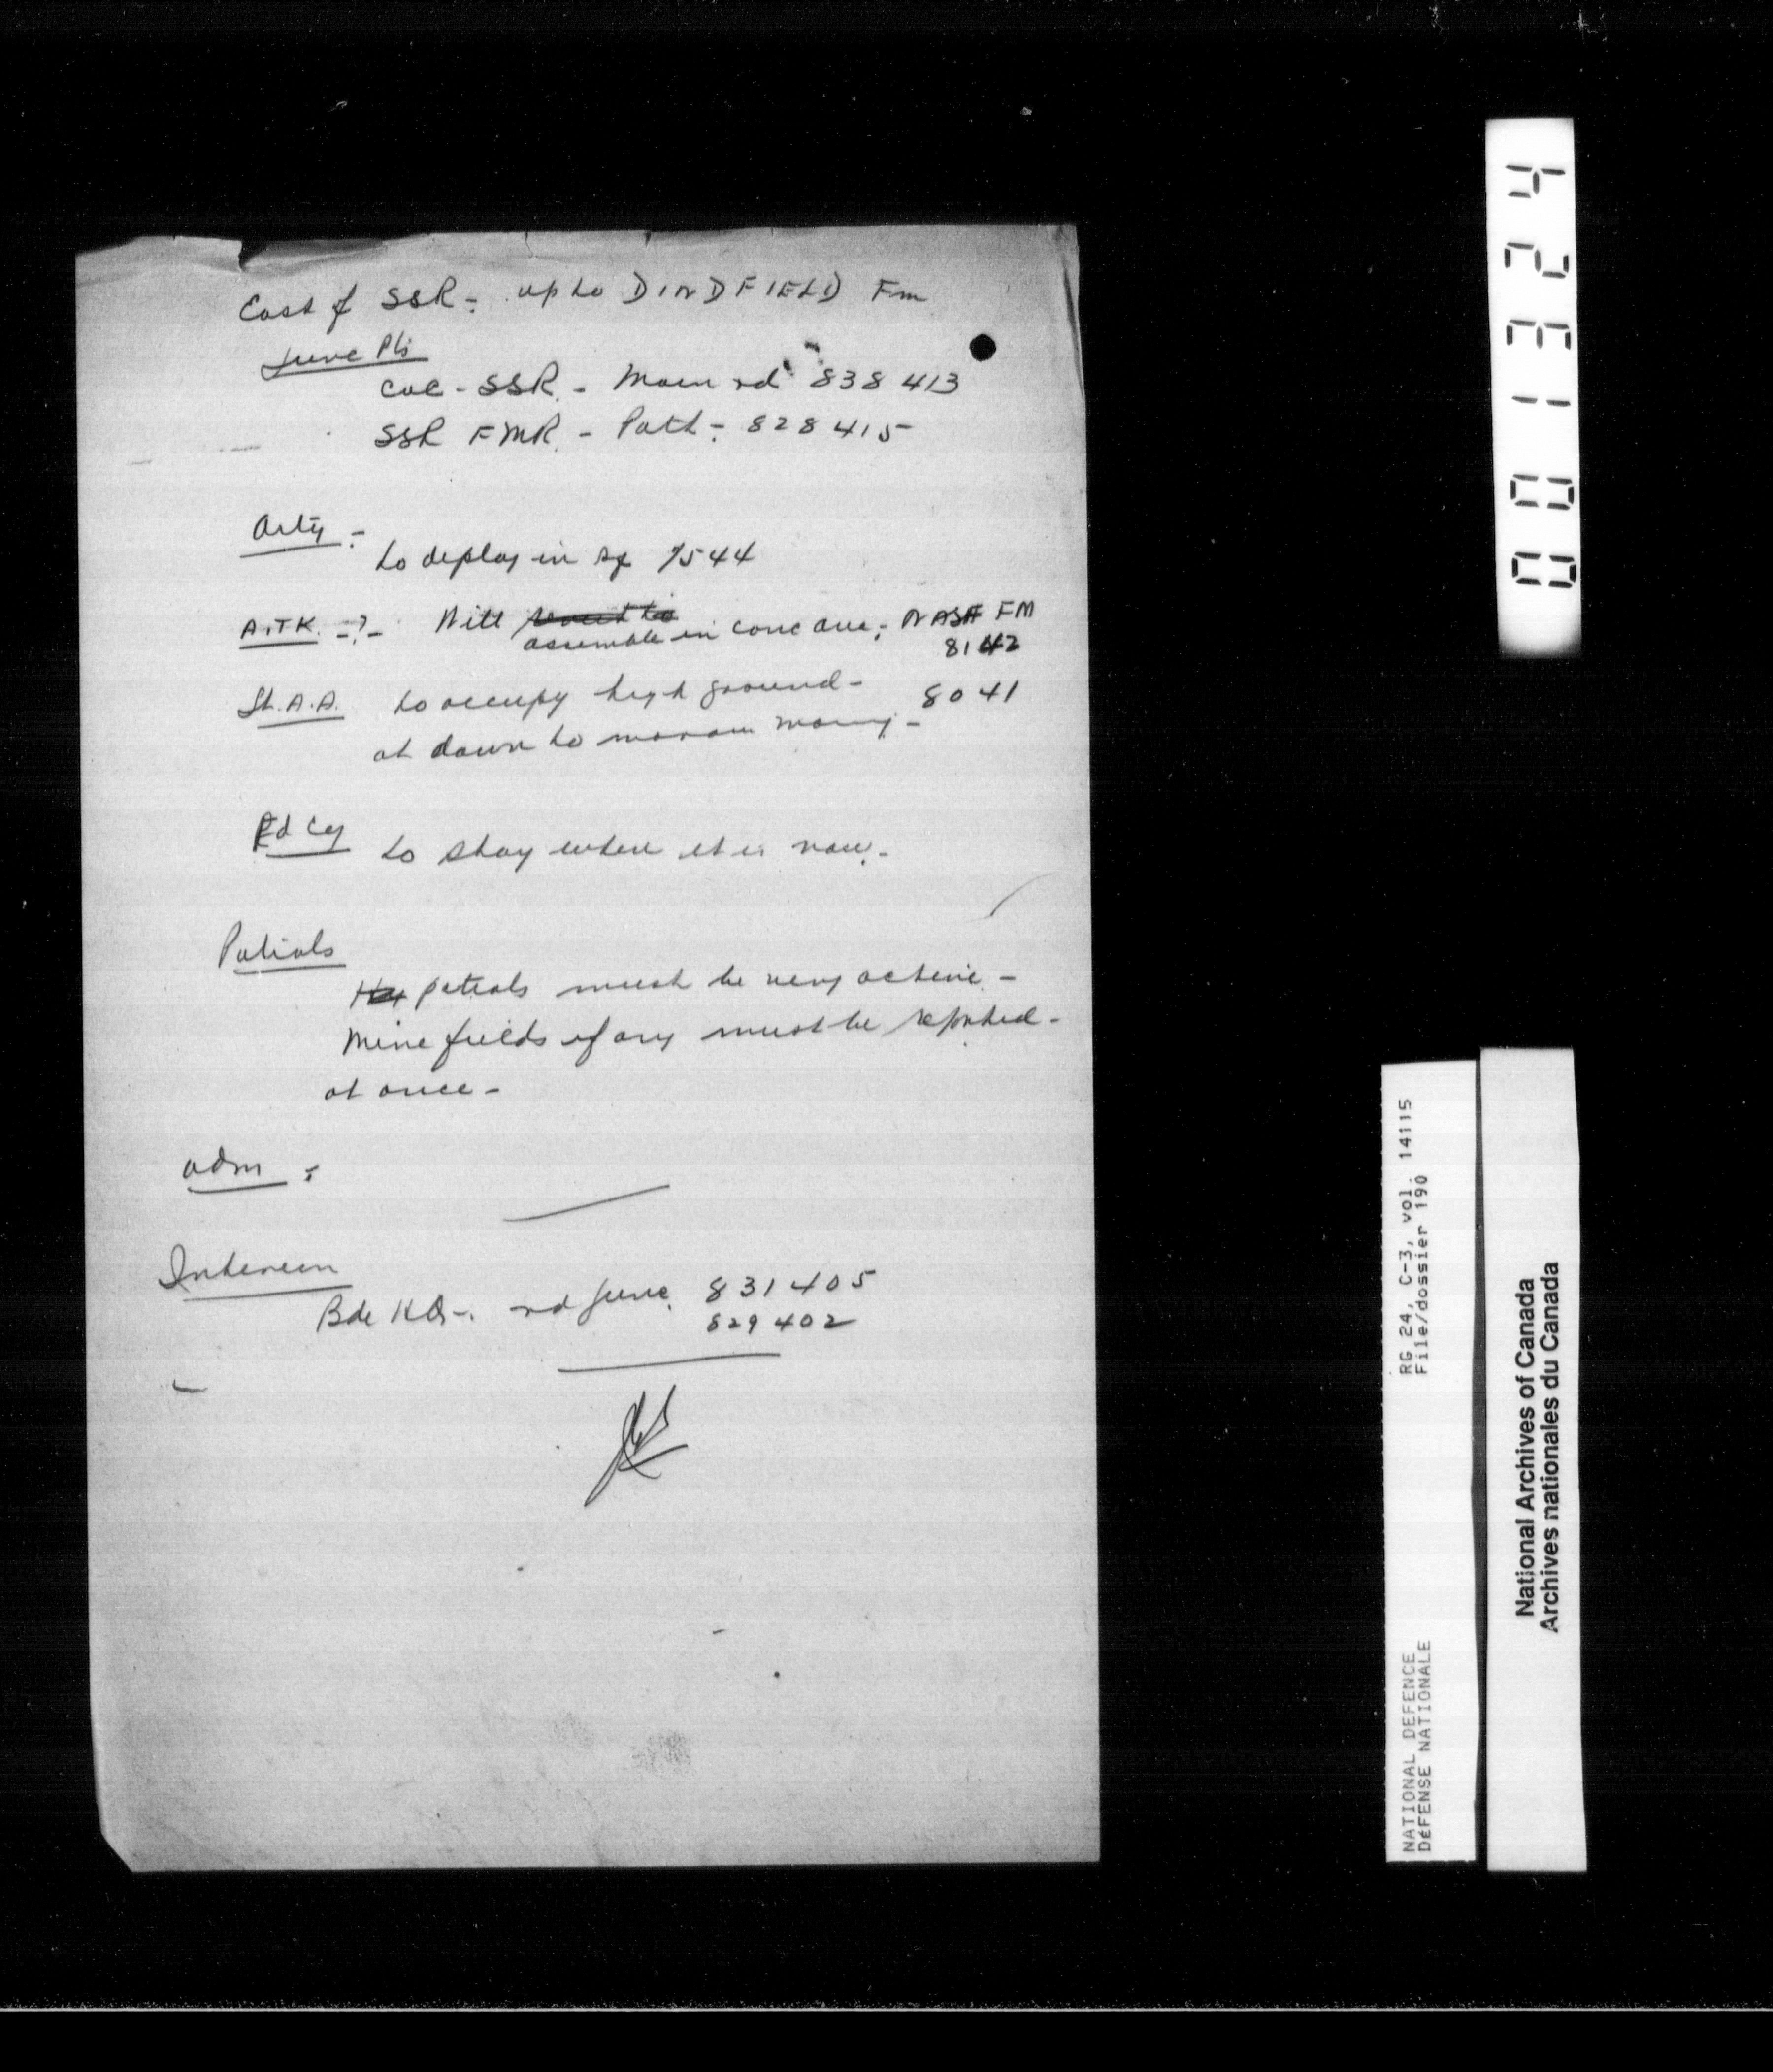 East of SSR - up to DINDFIELD Fm
Junc Pts
CHC - SSR. - Main rd 838 413
SSR FMR. - Path - 828 415
Arty -
to deploy in sq 7544
A.TK. - ? - Will
assemble in conc area - NASH FM
8142
Lt. A.A. to occupy high ground - 8041
at dawn to
Fd Coy to stay where it is now. -
Patrols
patrols must be very active -
Mine fields if any must be reported -
at once -
adm :
Intercom
Bde HQ - rd junc. 831405
829402
001324
RG 24, C-3, vol. 14115
File/dossier 190
NATIONAL DEFENCE
DÉFENSE NATIONALE
National Archives of Canada
Archives nationales du Canada